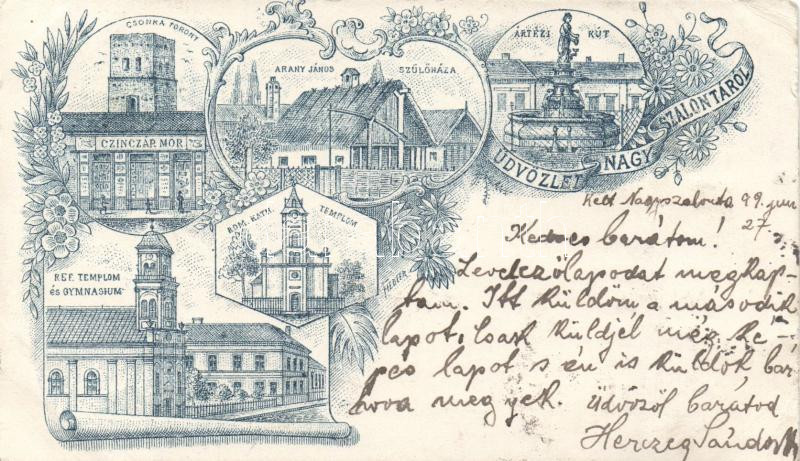 CSONKA TORONY
CZINCZÁR MÓR
ARANY JÁNOS SZÜLŐHÁZA
ÁRTÉZI KÚT
ÜDVÖZLET NAGY SZALONTÁRÓL
ROM. KATH. TEMPLOM
REF. TEMPLOM
és GYMNASIUM
WEFER
Kelt Nagyszalonta 99. jun
27.
Kedves barátom!
Levelezőlapodat megkap-
tam. Itt küldöm a második
lapot, csak küldjél még ké-
pes lapot s én is küldök, bar
hova megyek. Üdvözöl barátod
Herczeg Sándor